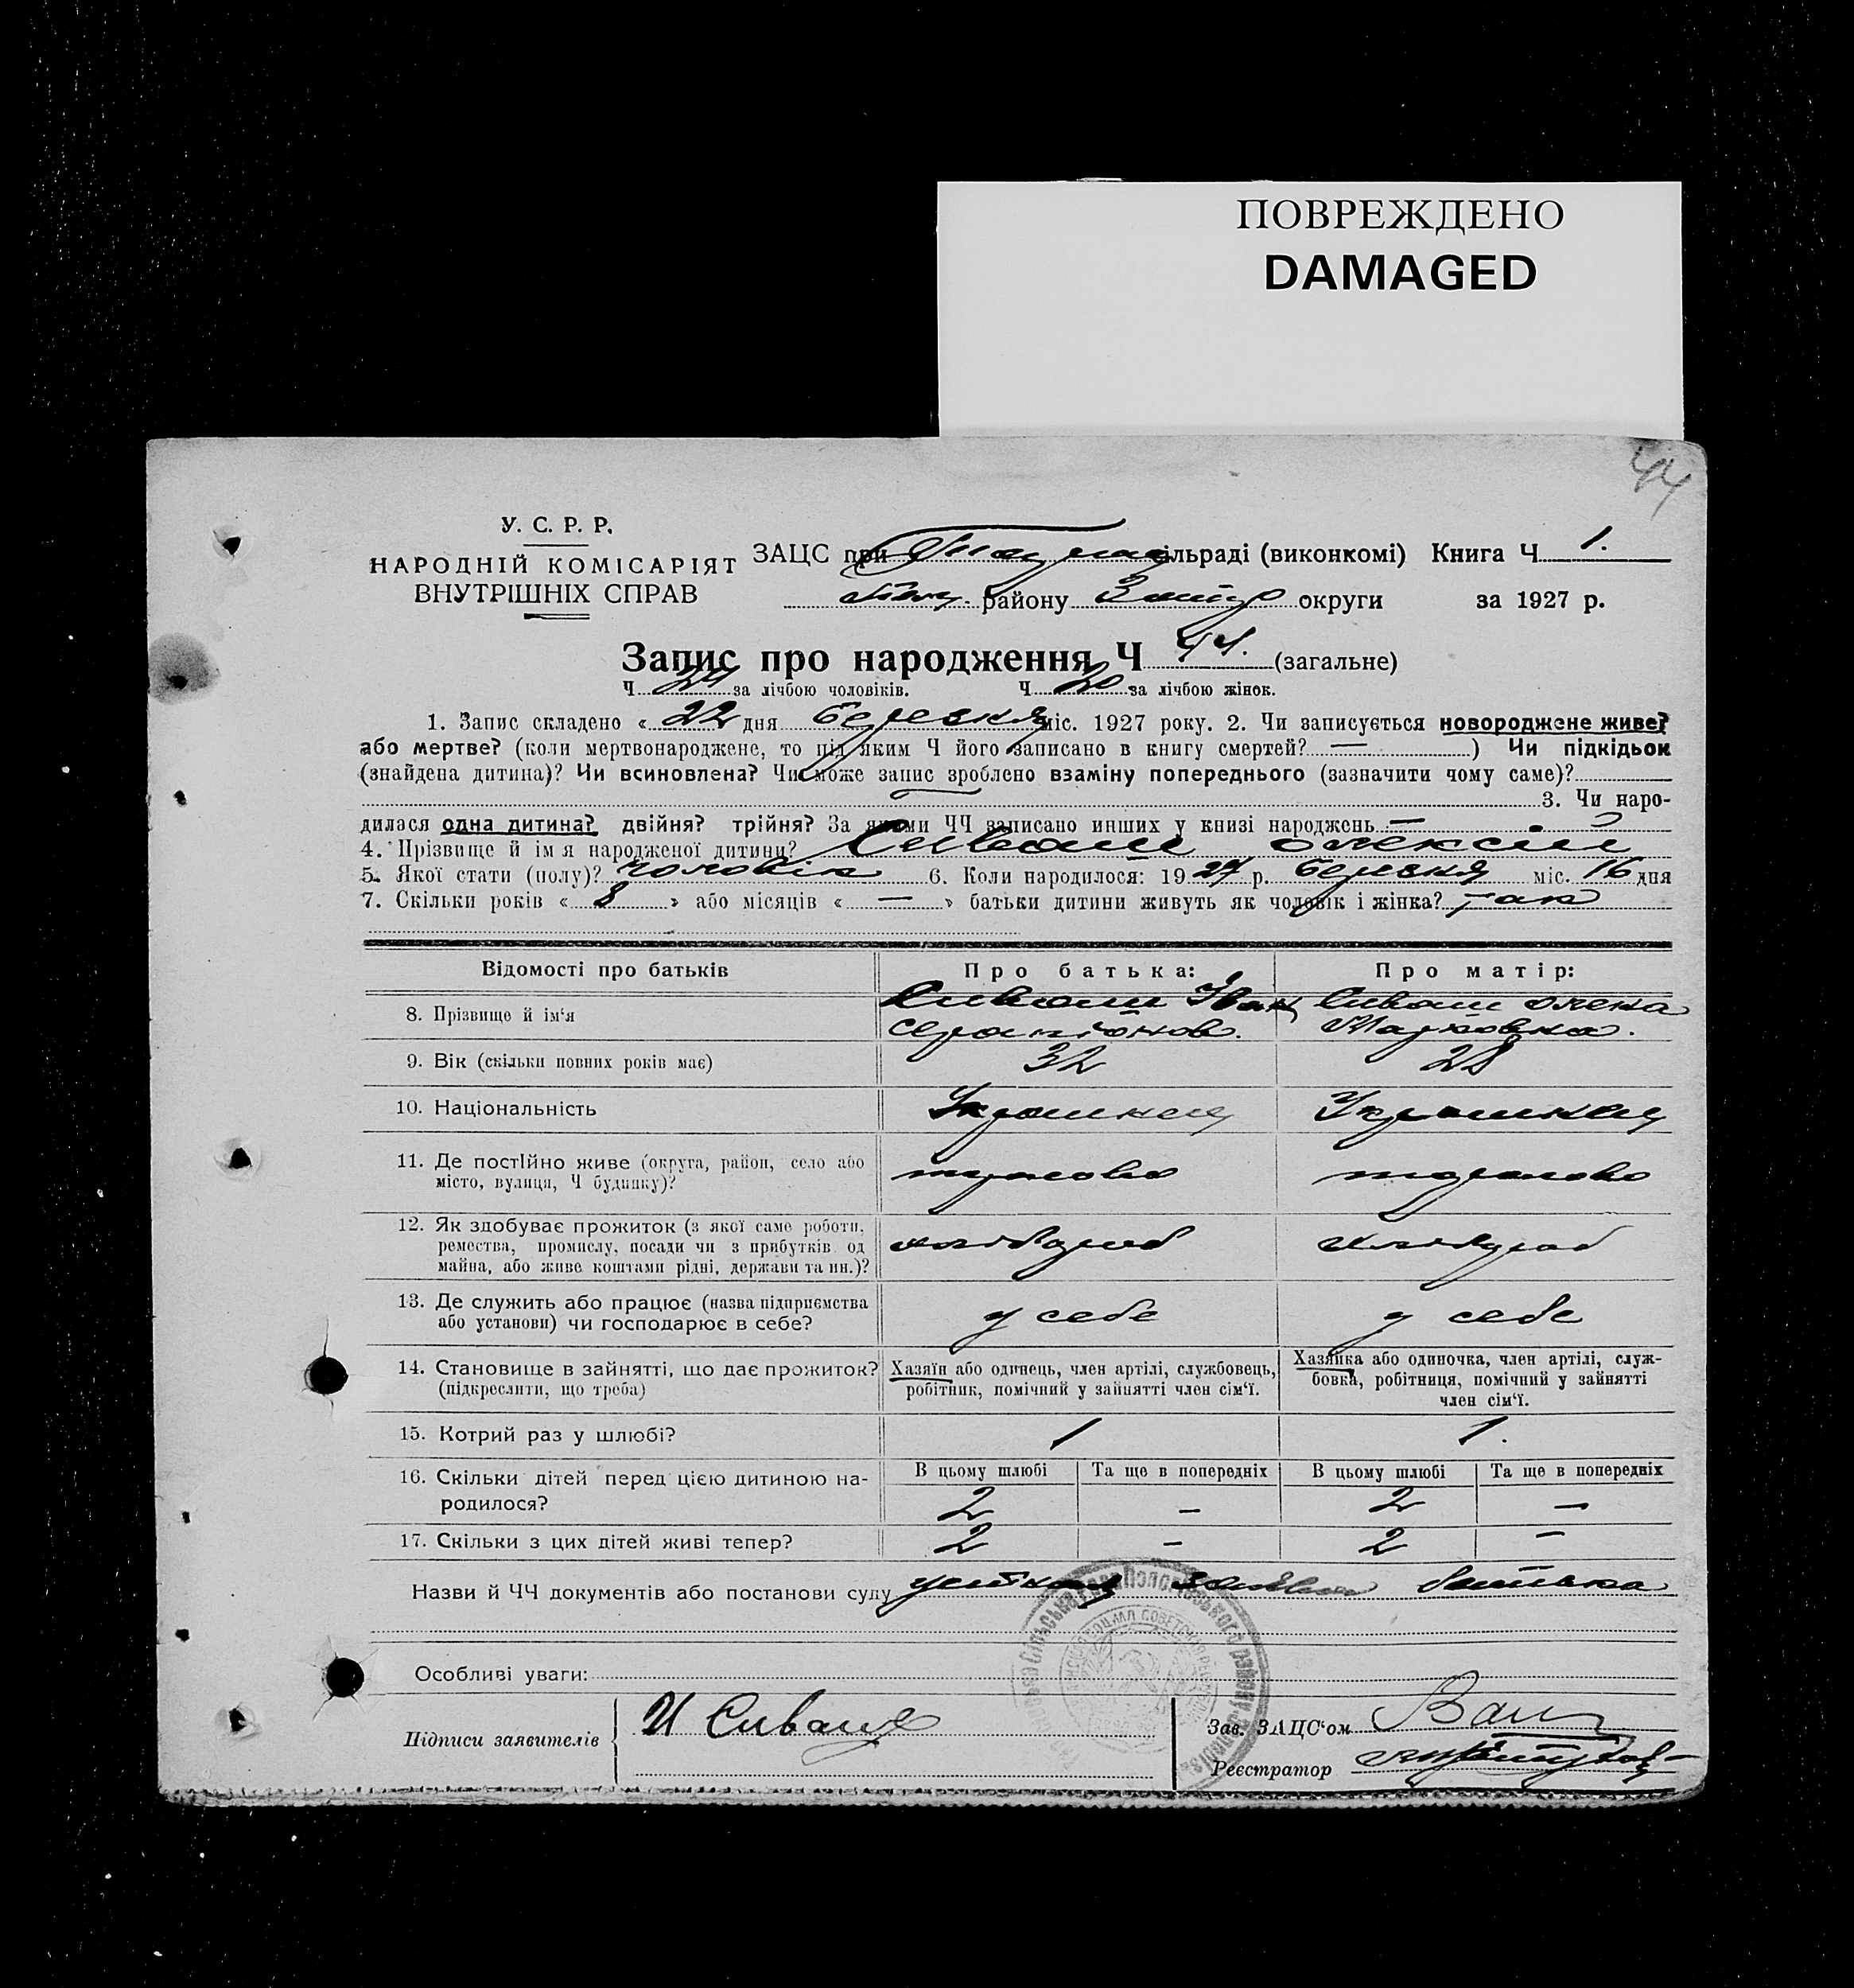 ПОВРЕЖДЕНО
DAMAGED
44
У. С. Р. Р.
НАРОДНІЙ КОМІСАРІЯТ
ВНУТРІШНІХ СПРАВ
ЗАЦС при сільраді (виконкомі) Книга Ч 1.
району округи за 1927 р.
Запис про народження Ч 44. (загальне)
Ч 24 за лічбою чоловіків. Ч 20 за лічбою жінок.
1. Запис складено « 22 дня березня міс. 1927 року. 2. Чи записується новороджене живе?
або мертве? (коли мертвонароджене, то під яким Ч його записано в книгу смертей? — ) Чи підкідьок
(знайдена дитина)? Чи всиновлена? Чи може запис зроблено взаміну попереднього (зазначити чому саме)?
— 3. Чи наро-
дилася одна дитина? двійня? трійня? За якими ЧЧ записано инших у книзі народжень —
4. Прізвище й ім'я народженої дитини? Сиваш Олексій
5. Якої стати (полу)? чоловік 6. Коли народилося: 1927 р. березня міс. 16 дня
7. Скільки років « 8 » або місяців « — » батьки дитини живуть як чоловік і жінка? так
Відомості про батьків Про батька: Про матір:
8. Прізвище й ім'я Сиваш Іван Серапіонов. Сиваш Олена Марковна.
9. Вік (скільки повних років має) 32 28
10. Національність Українец Українец
11. Де постійно живе (округа, район, село або
місто, вулиця, Ч будинку)?
12. Як здобуває прожиток (з якої саме роботи,
ремества, промислу, посади чи з прибутків од
майна, або живе коштами рідні, держави та ин.)? хлібороб хлібороб
13. Де служить або працює (назва підприємства
або установи) чи господарює в себе? у себе у себе
14. Становище в зайнятті, що дає прожиток?
(підкреслити, що треба)
Хазяїн або одинець, член артілі, службовець,
робітник, помічний у зайнятті член сім'ї.
Хазяйка або одиночка, член артілі, служ-
бовка, робітниця, помічний у зайнятті
член сім'ї.
15. Котрий раз у шлюбі? 1 1.
16. Скільки дітей перед цією дитиною на-
родилося?
В цьому шлюбі Та ще в попередніх В цьому шлюбі Та ще в попередніх
2 – 2 –
17. Скільки з цих дітей живі тепер? 2 – 2 –
Назви й ЧЧ документів або постанови суду устная заява батька
Особливі уваги:
Підписи заявителів И Сиваш
Зав. ЗАЦС'ом
Реєстратор